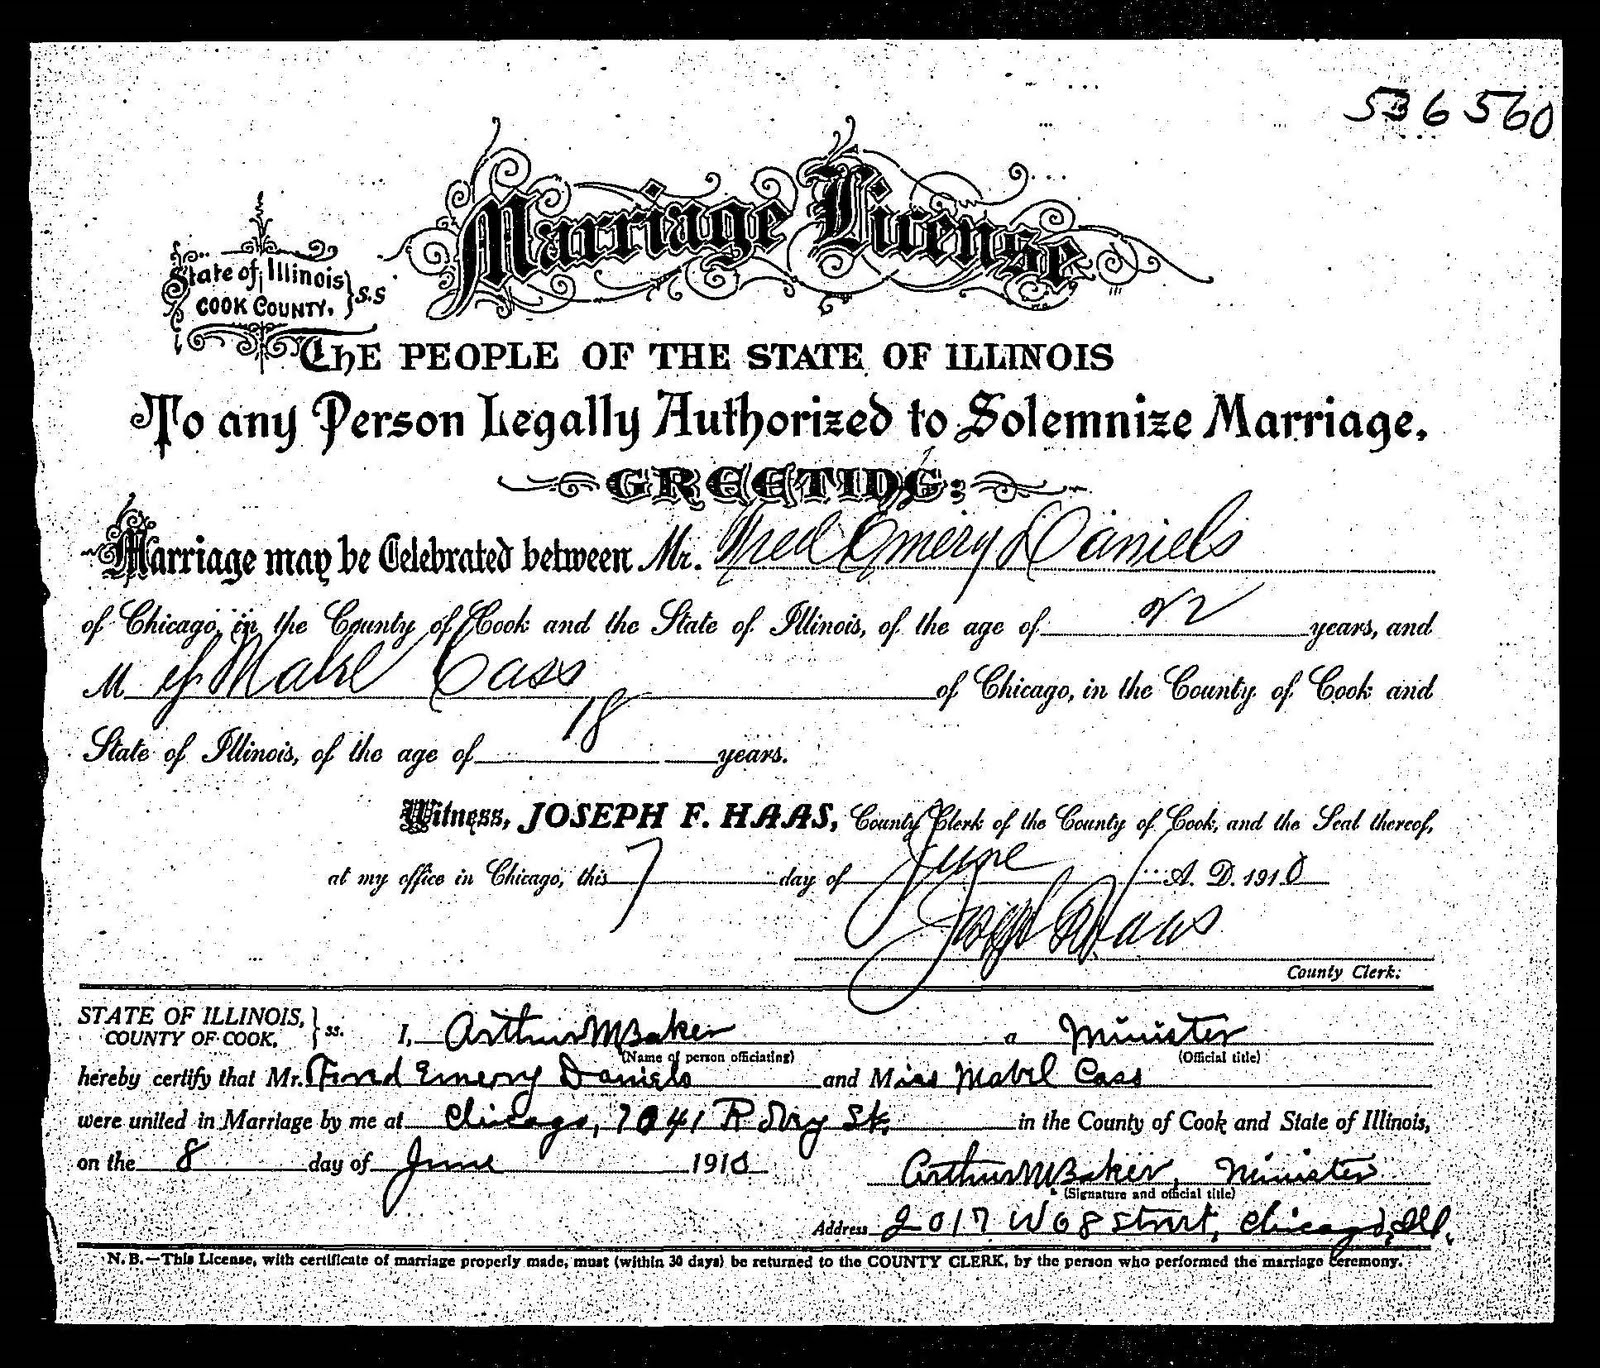 536560
Marriage License
State of Illinois
COOK COUNTY. } S.S
THE PEOPLE OF THE STATE OF ILLINOIS
To any Person Legally Authorized to Solemnize Marriage,
GREETING:
Marriage may be Celebrated between Mr. Fred Emery Daniels
of Chicago, in the County of Cook and the State of Illinois, of the age of 22 years, and
M Mabel Cass of Chicago, in the County of Cook and
State of Illinois, of the age of 18 years.
Witness, JOSEPH F. HAAS, County Clerk of the County of Cook, and the Seal thereof,
at my office in Chicago, this 7 day of June A. D. 1910
Joseph F Haas
County Clerk.
STATE OF ILLINOIS,
COUNTY OF COOK, } ss. I, Arthur M Baker a Minister
(Name of person officiating) (Official title)
hereby certify that Mr. Fred Emery Daniels and Miss Mabel Cass
were united in Marriage by me at Chicago, 7041 St. in the County of Cook and State of Illinois,
on the 8 day of June 1910
Arthur M Baker, Minister
(Signature and official title)
Address 2017 W 68 Street, Chicago, Ill.
N. B.—This License, with certificate of marriage properly made, must (within 30 days) be returned to the COUNTY CLERK, by the person who performed the marriage ceremony.